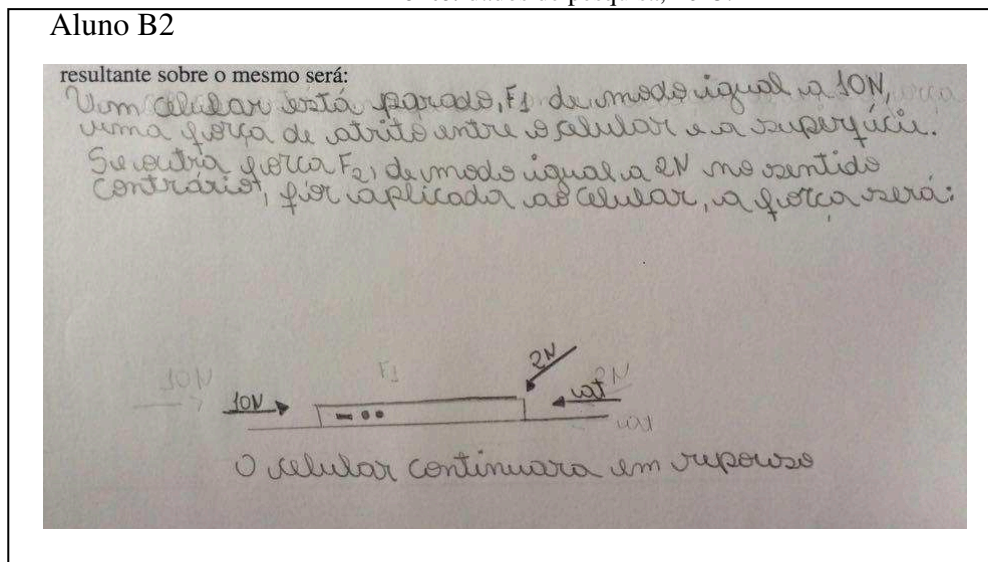 Aluno B2
resultante sobre o mesmo será:
Um celular está parado, F1 de modo igual a 10N,
uma força de atrito entre o celular e a superfúcie.
Se outra força F2, de modo igual a 2N no sentido
contrário, for aplicada ao celular, a força será:
10N F1 2N 2N
10N at
at
O celular continuara em repouso